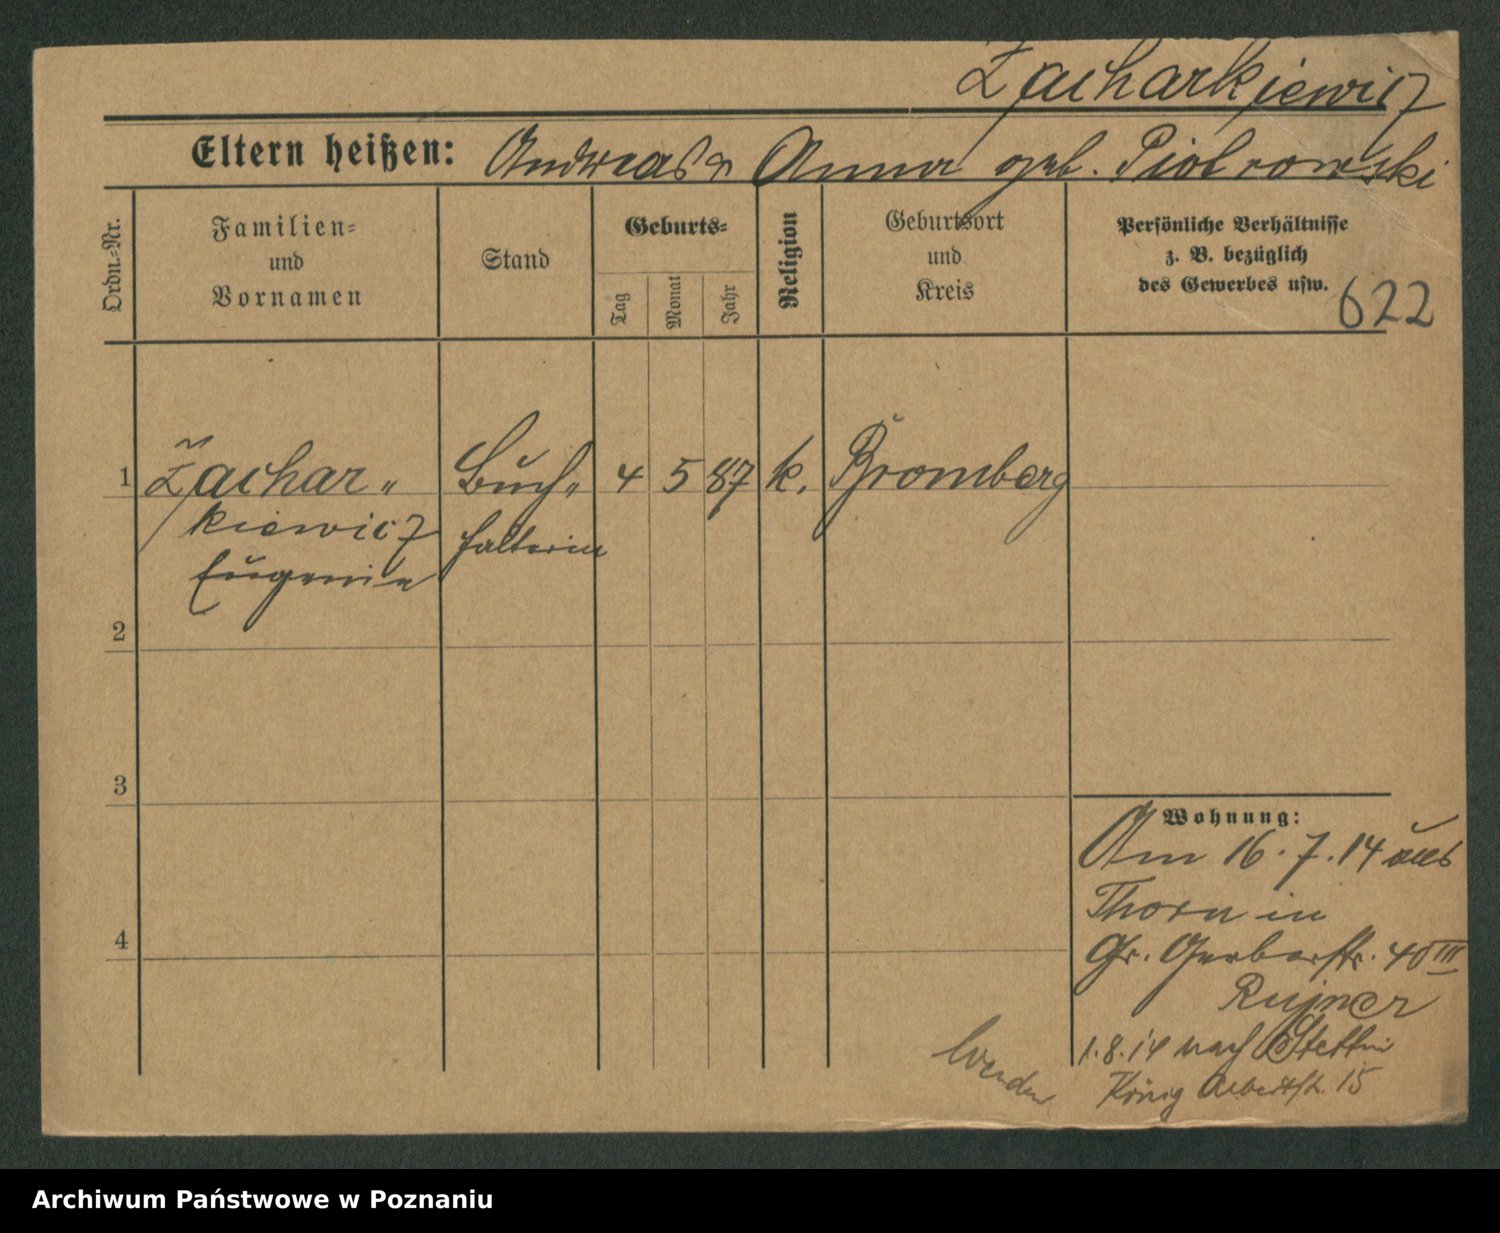 Zacharkiewicz
Eltern heißen: Andreas & Anna geb. Piotrowski
Ordn.-Nr.
Familien-
und
Vornamen
Stand
Geburts-
Tag
Monat
Jahr
Religion
Geburtsort
und
Kreis
Persönliche Verhältnisse
z. B. bezüglich
des Gewerbes usw.
622
1 Zachar" Buch" 4 5 87 k. Bromberg
kiewicz halterin
Eugenia
2
3
4
Wohnung:
Am 16.7.14 aus
Thorn in
Gr. Gerberstr. 40 III
Rujner
1.8.14 nach Stettin
König Albertstr. 15
Wenden
Archiwum Państwowe w Poznaniu